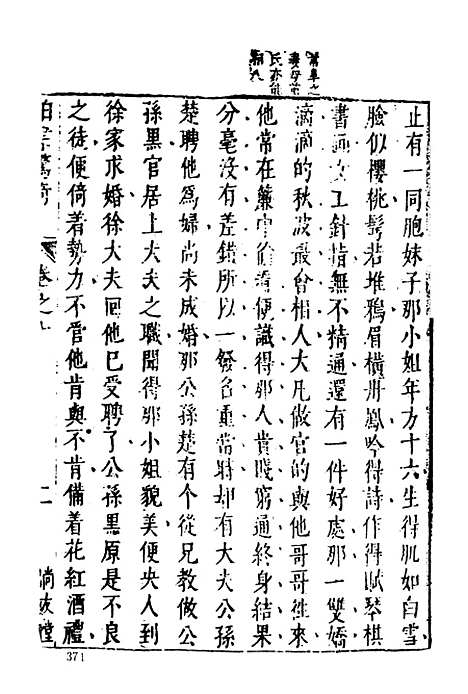 止有一同胞妹子那小姐年方十六生得肌如白雪
臉似櫻桃鬂若堆鴉眉橫丹鳳吟得詩作得賦琴棋
書畫女工針指無不精通還有一件好處那一雙嬌
滴滴的秋波最會相人大凡做官的與他哥哥徃來
他常在簾中偷看便識得那人貴賤窮通終身結果
分毫沒有差錯所以一發名重當時却有大夫公孫
楚聘他爲婦尚未成婚那公孫楚有个從兄教做公
孫黑官居上大夫之職聞得那小姐貌美便央人到
徐家求婚徐大夫回他已受聘了公孫黑原是不良
之徒便倚着勢力不管他肯與不肯備着花紅酒禮
拍案驚竒
卷之十
二
尚友堂
371